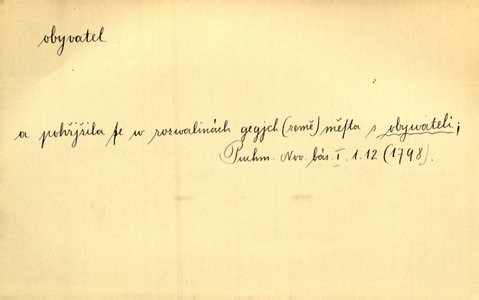 obyvatel
a pohřjžila ſe w rozwalinách gegjch (země) měſta s obywateli;
Puchm. Nov. bás. I. 1. 12 (1798).